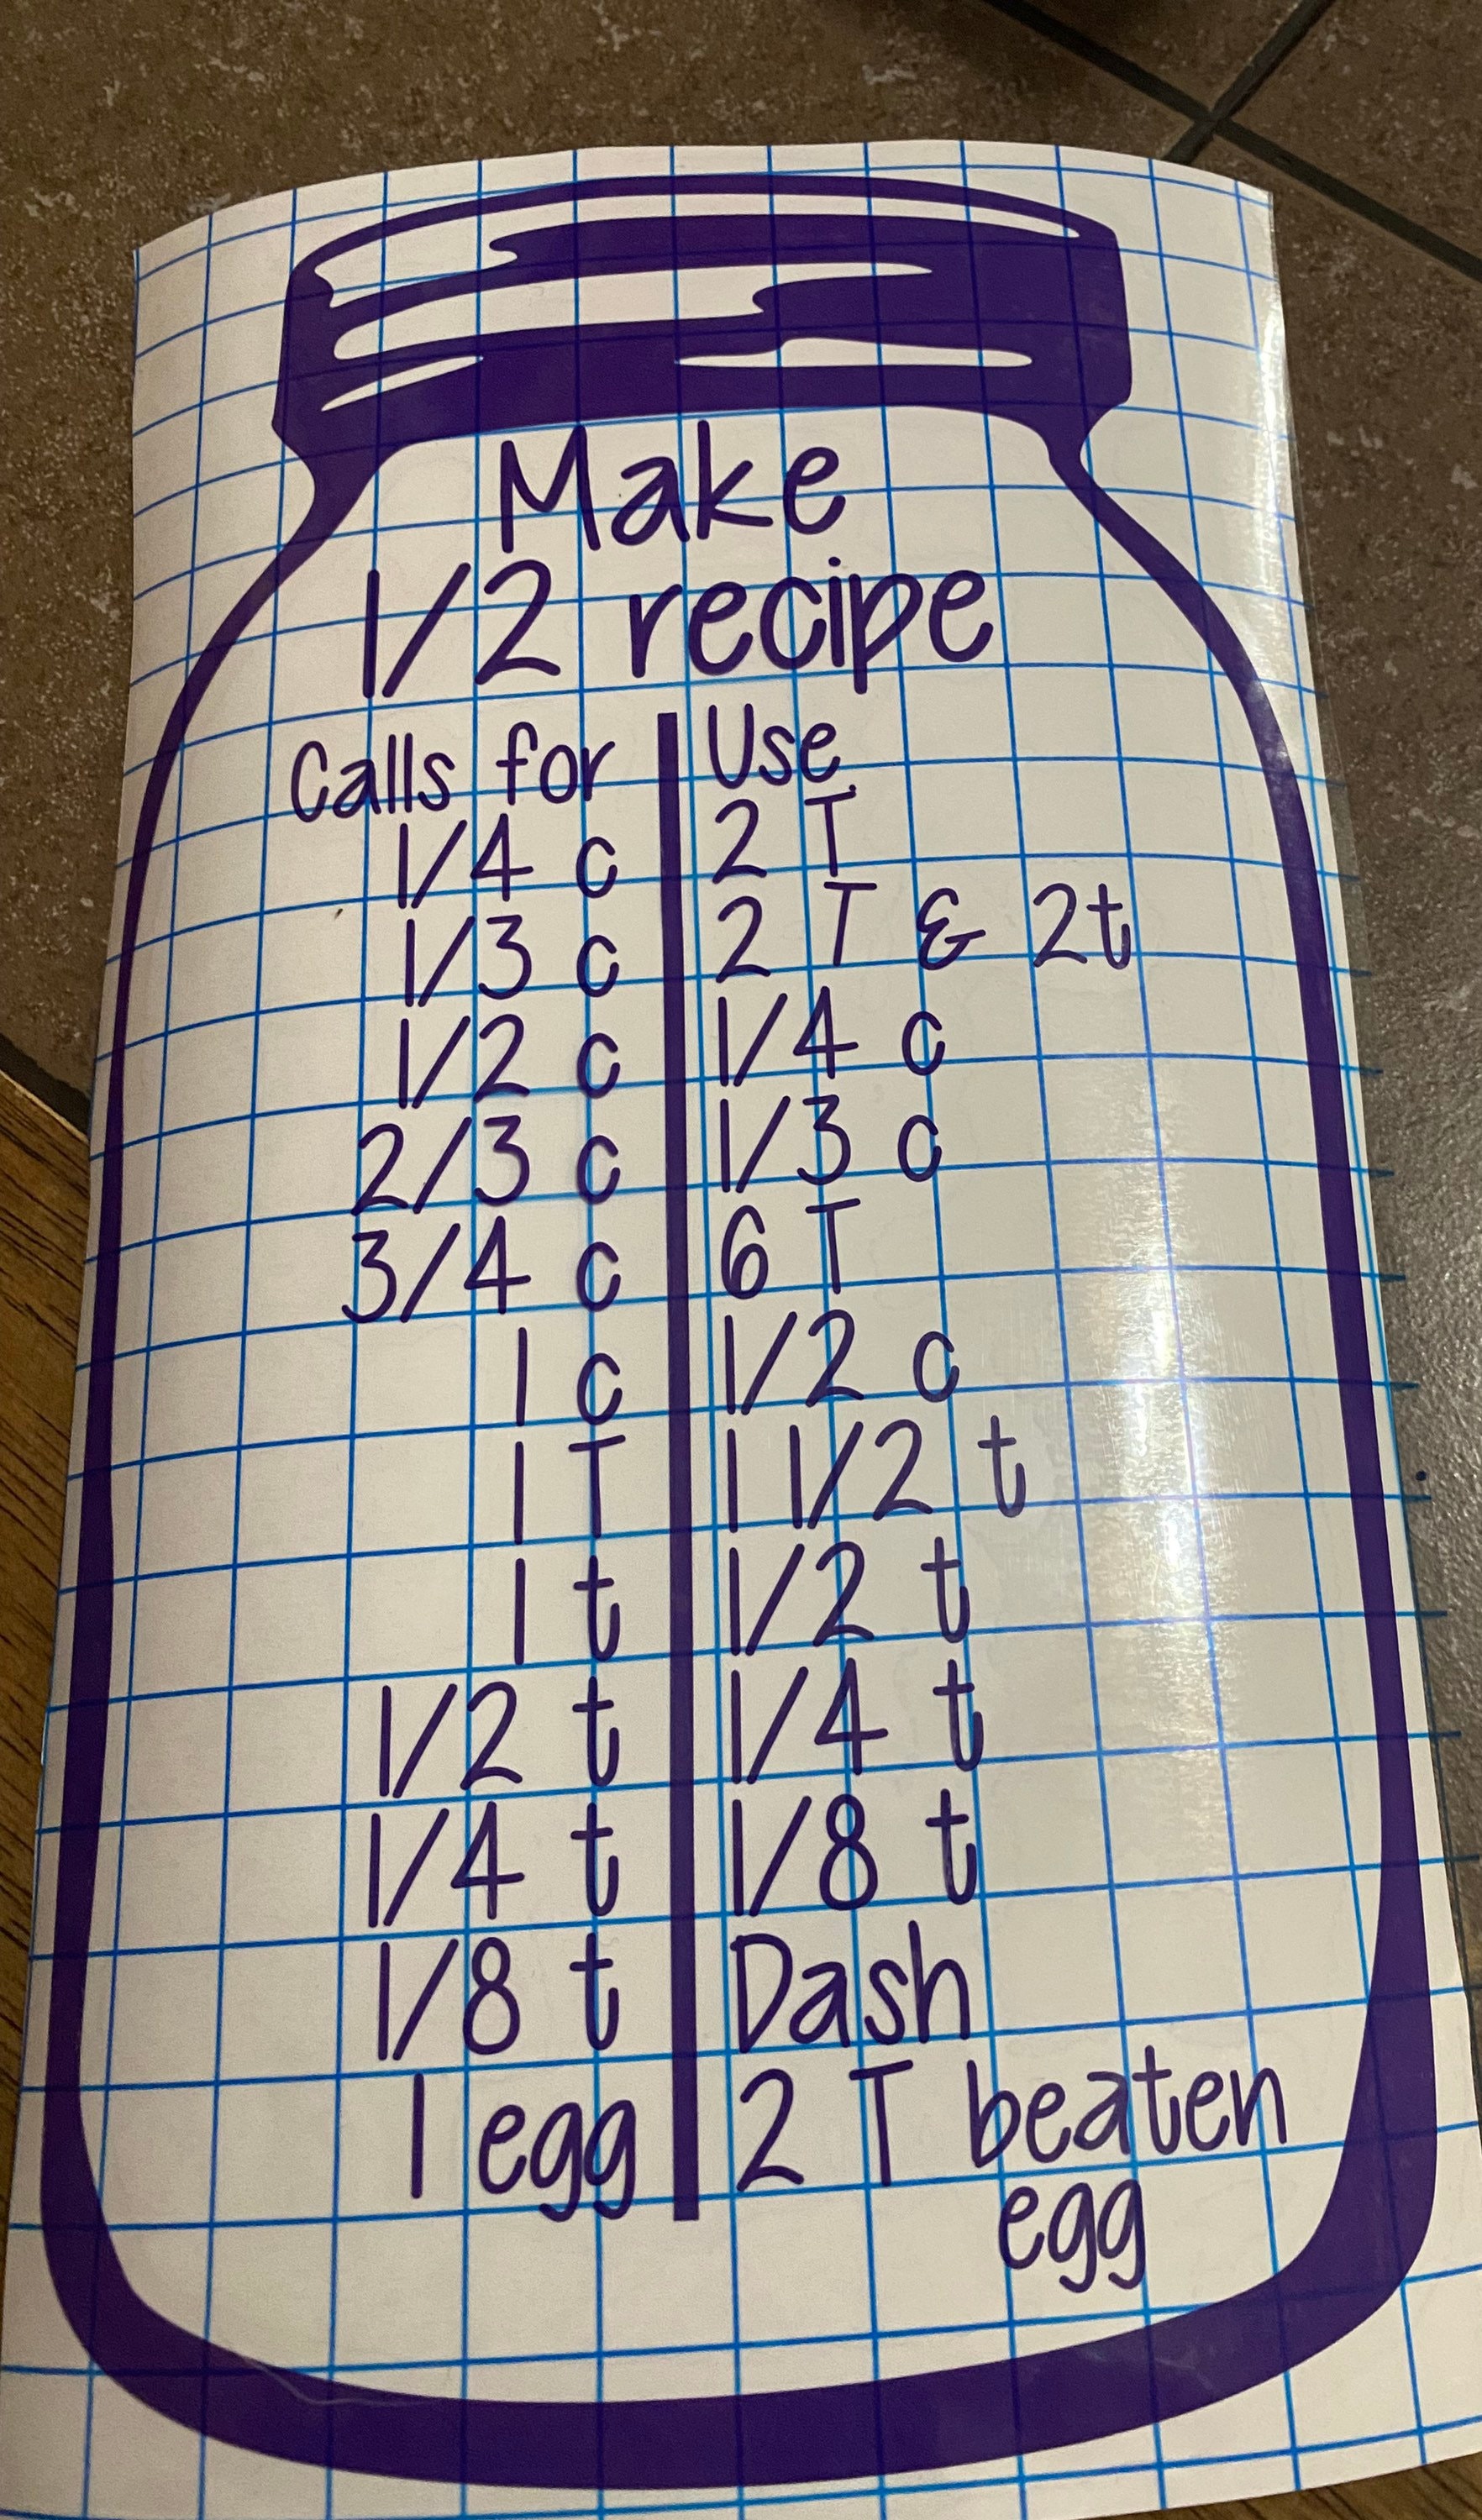 Make
1/2 recipe
Calls for Use
1/4 c 2 T
1/3 c 2 T & 2t
1/2 c 1/4 c
2/3 c 1/3 c
3/4 c 6 T
1 c 1/2 c
1 T 1 1/2 t
1 t 1/2 t
1/2 t 1/4 t
1/4 t 1/8 t
1/8 t Dash
1 egg 2 T beaten
egg